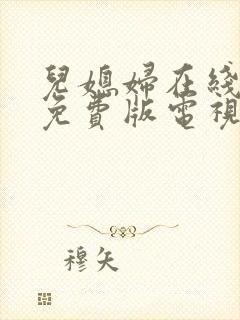 兒媳婦在綫
免費版電視
穆矢